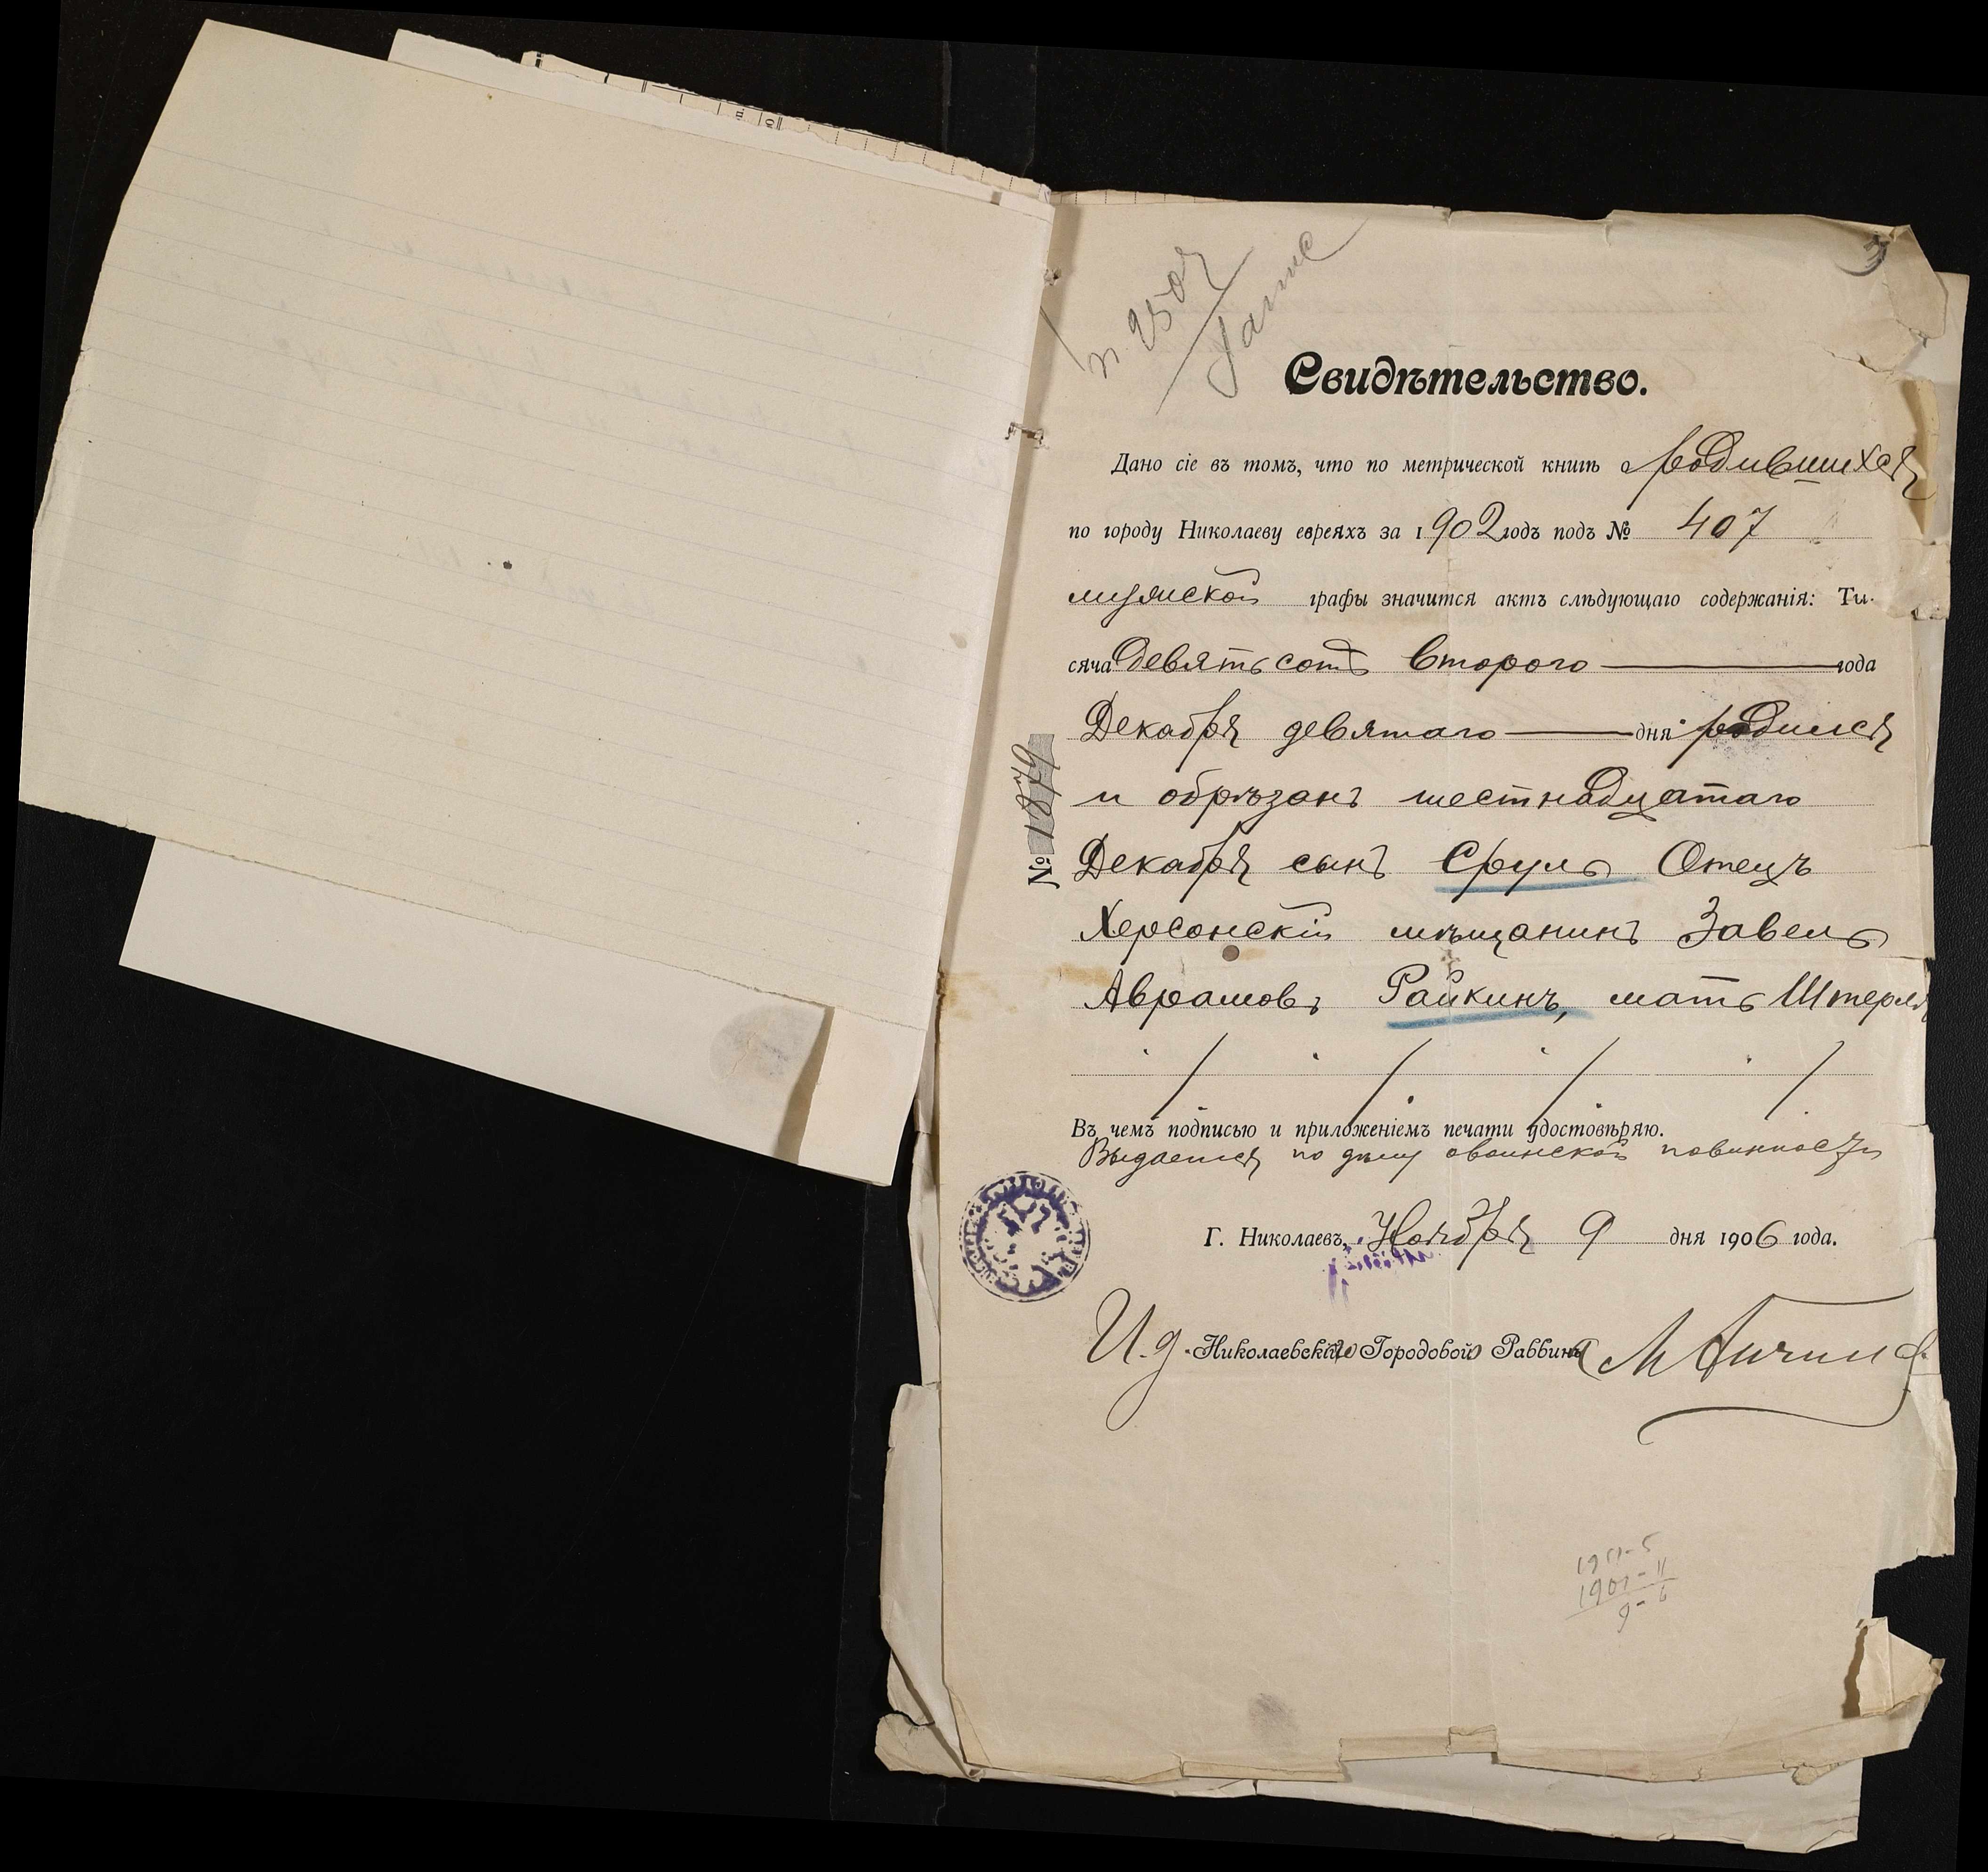 Свидѣтельство.
Дано сіе въ томъ, что по метрической книгѣ о родившихся
по городу Николаеву евреяхъ за 1902 годъ подъ № 407
мужской графы значится актъ слѣдующаго содержанія: Ты-
сяча девятьсотъ второго года
Декабря девятаго дня родился
и обрѣзанъ шестнадцатаго
№ 1879
Декабря сынъ Сруль Отецъ
Херсонскій мѣщанинъ Завель
Аврамовъ Райкинъ, мать Штерля
Въ чемъ подписью и приложеніемъ печати удостовѣряю.
Выдается по дѣлу о воинской повинности
Г. Николаевъ, Ноября 9 дня 1906 года.
И.д. Николаевскаго Городового Раввина